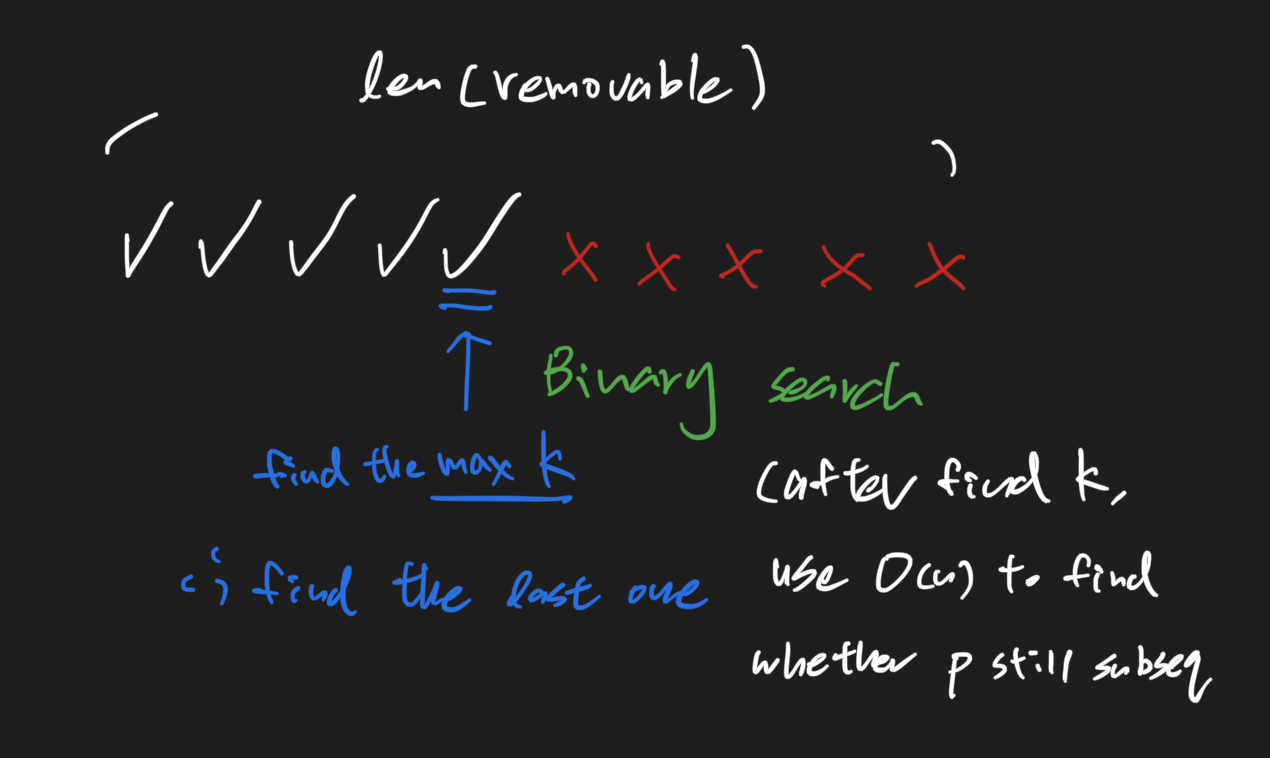 len(removable)
✓ ✓ ✓ ✓ ✓ x x x x x
Binary search
find the max k
find the last one
(after find k,
use O(n) to find
whether p still subseq